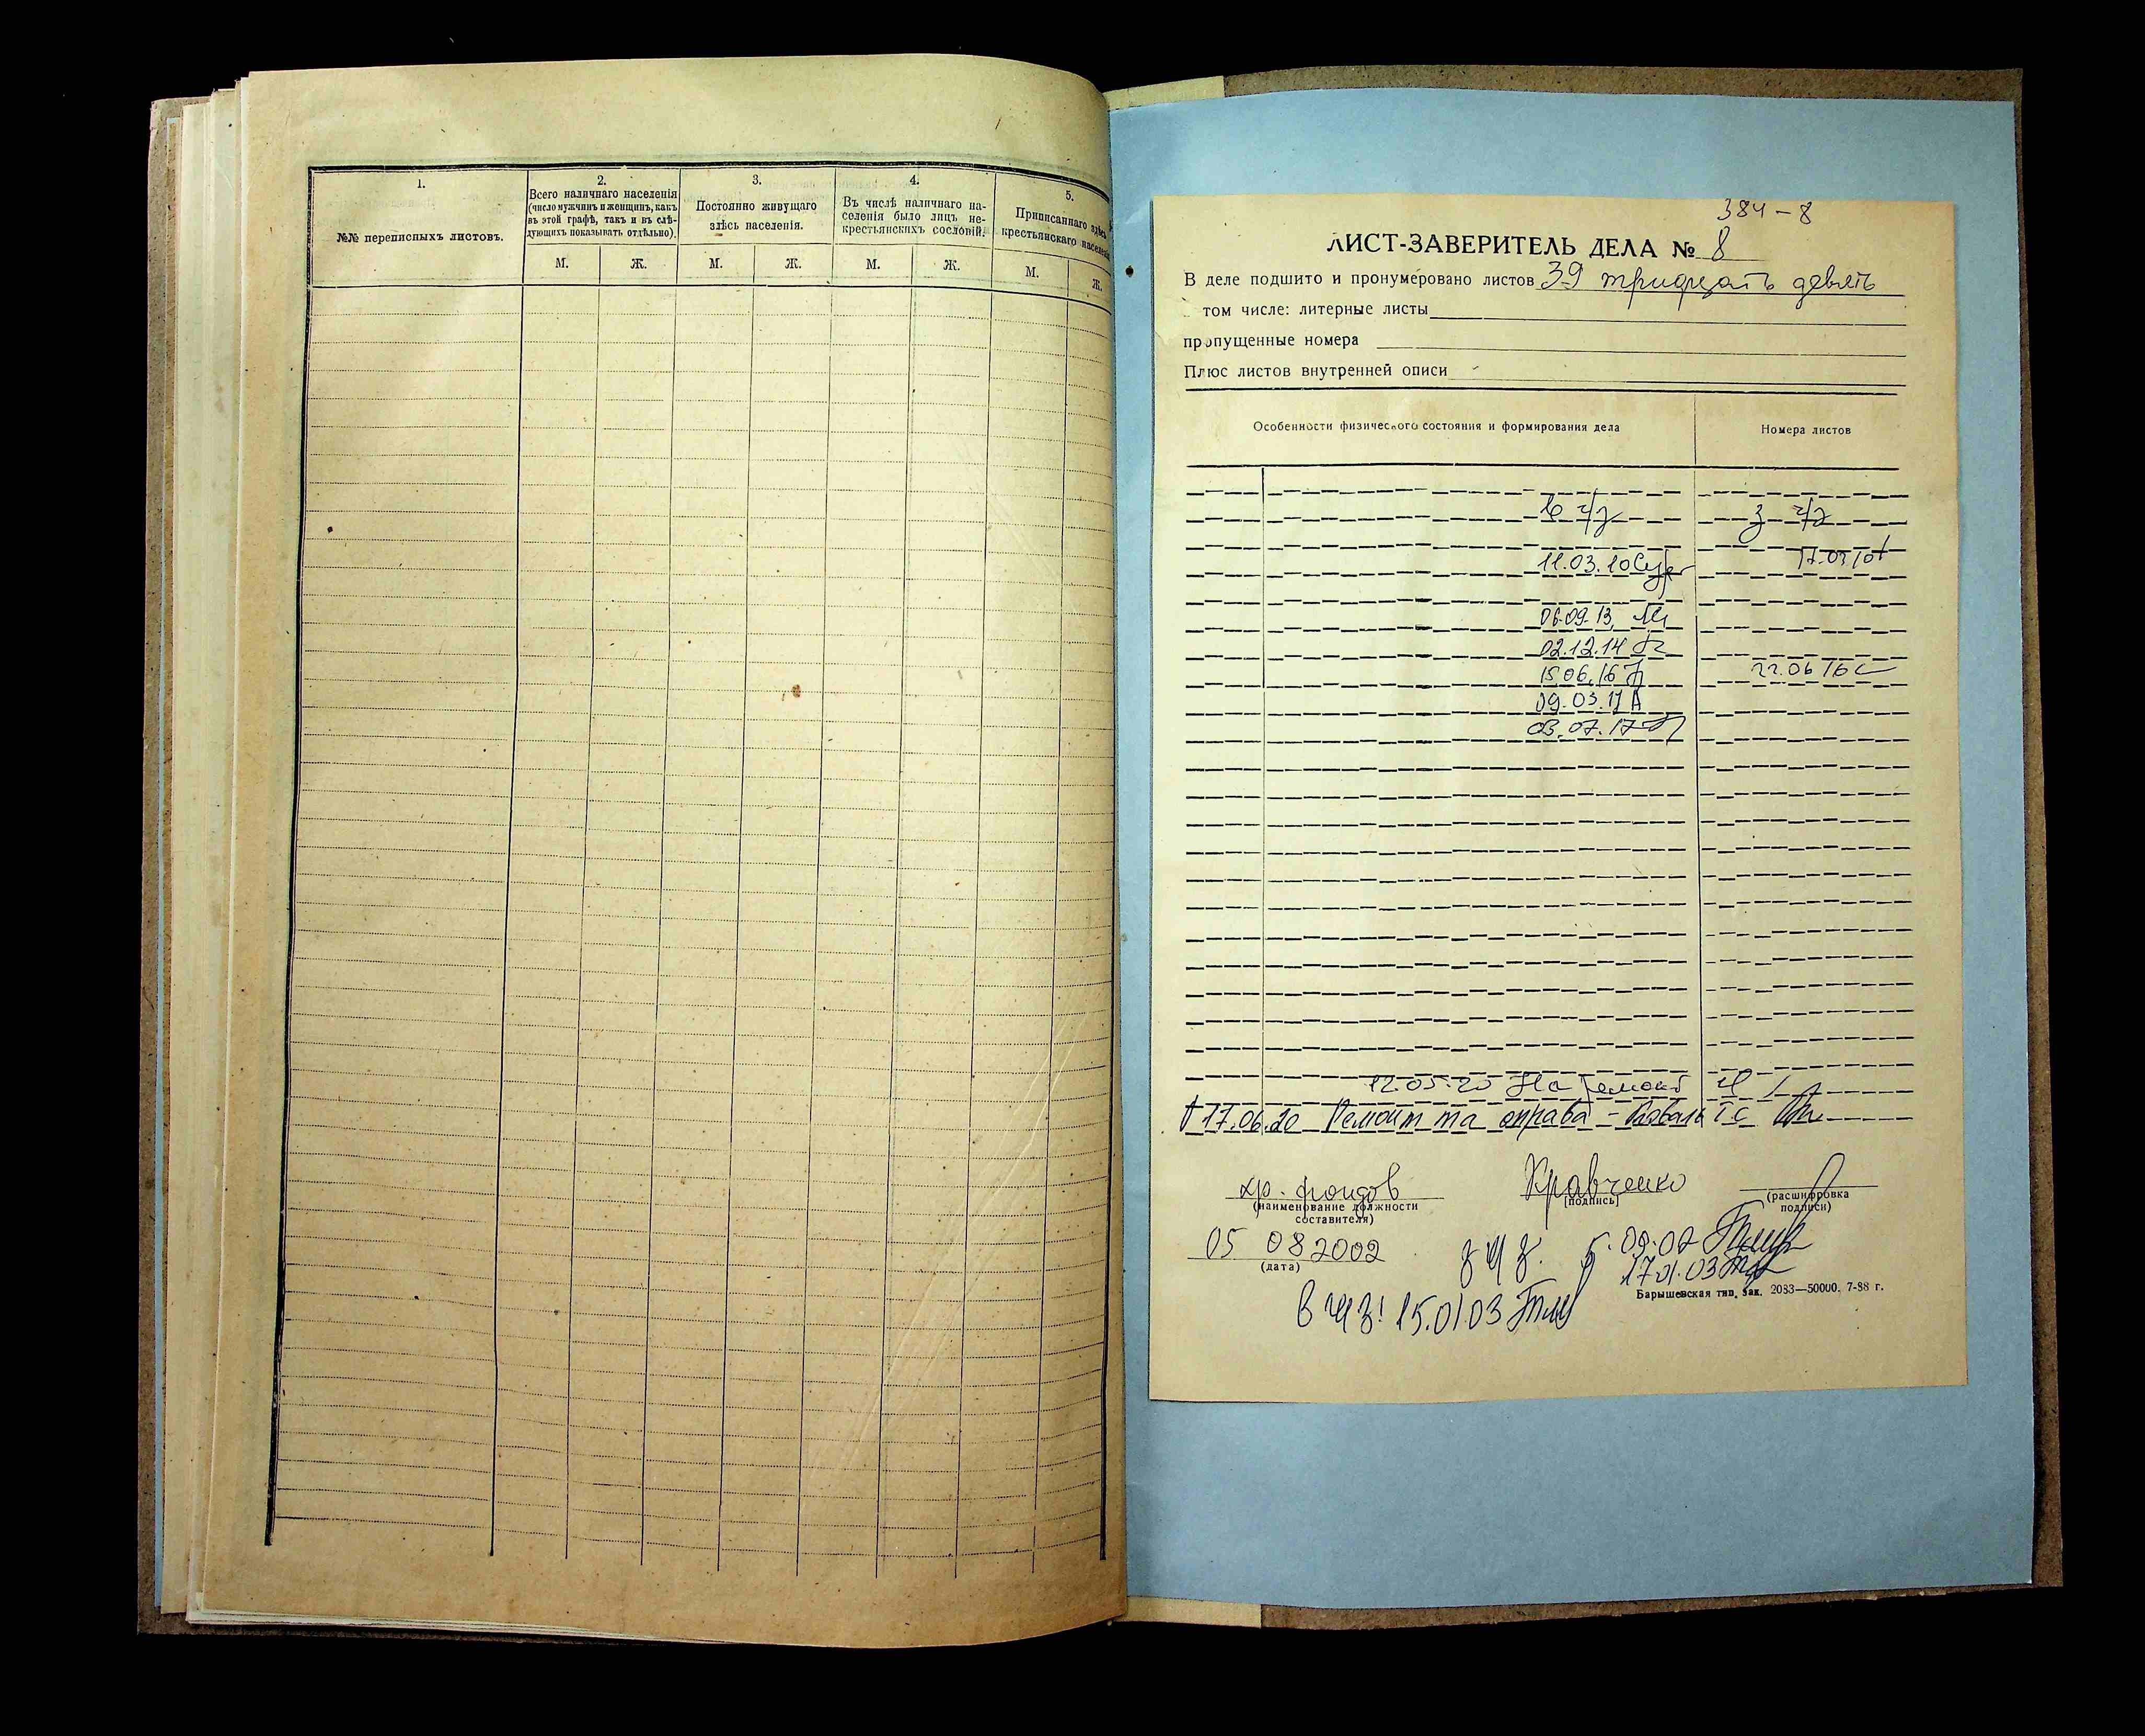 1.
№№ переписныхъ листовъ.
2.
Всего наличнаго населенія
(число мужчинъ и женщинъ, какъ
въ этой графѣ, такъ и въ слѣ-
дующихъ показывать отдѣльно).
3.
Постоянно живущаго
здѣсь населенія.
4.
Въ числѣ наличнаго на-
селенія было лицъ не-
крестьянскихъ сословій.
5.
Приписаннаго здѣсь
крестьянскаго населен
М. Ж. М. Ж. М. Ж. М. Ж.
384-8
ЛИСТ-ЗАВЕРИТЕЛЬ ДЕЛА № 8
В деле подшито и пронумеровано листов 39 тридцать девять
том числе: литерные листы
пропущенные номера
Плюс листов внутренней описи
Особенности физического состояния и формирования дела
Номера листов
11.03.10
06.09.13
02.12.14
15.06.16 22.06 16
09.03.17
03.07.17
12.05.20 На ремонт
17.06.20 Ремонт та оправа - Коваль Т.С
хр. фондов Кравченко
(наименование должности
составителя)
(подпись)
(расшифровка
подписи)
05 08 2002
(дата)
17.01.03
Барышевская тип. Зак. 2083—50000. 7-88 г.
в ч/з! 15.01.03